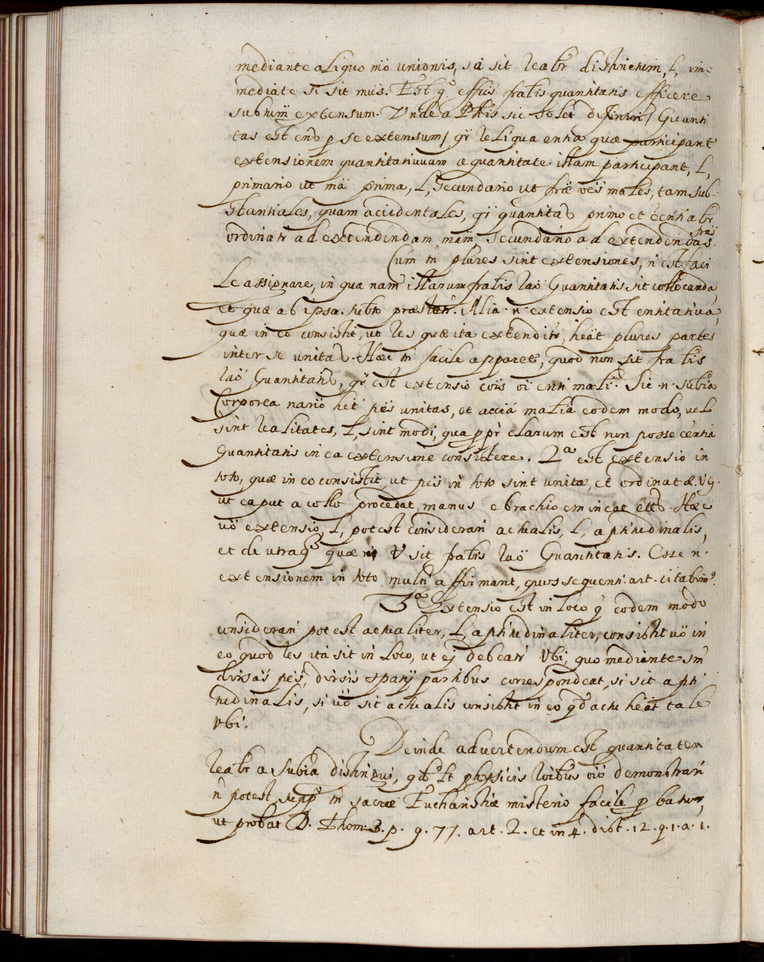 mediante aliquo mō unionis, si sit realr distinctum, l, im-
mediate si sit mus. Est q effūs fralis quantitatis efficere
subtum extensum. Unde a Phis sic solet difiniri / Quanti
tas est ens p se extensum / qr reliqua entia quæ participant
extensionem quantitativam a quantitate illam participant, l,
primario ut mā prima, l, secundario ut fræ ves males, tam sub-
stantiales, quam accidentales, qr quantitas primo et centialr
ordinatr ad extendendam mām secundario ad extendendas fras
Cum tn plures sint extensiones, n est faci
le assignare, in qua nam illarum fralis rāo Quantitatis sit collocanda,
et quæ ab ipsa hēto præstatr. Alia .n. extensio est entitativa,
quæ in eo consistit, ut res quæ ita extenditr, heāt plures partes
inter se unitas. Hæc tn facile apparet, quod non sit fralis
rāo Quantitatis, qr est extensio cōis oi enti mali. Sic .n. subia
Corporea het pes unitas, et accia malia eodem modo, vel
sint realitates, l, sint modi, qua ppr clarum est non posse centia
Quantitatis in ea extensione consistere. 2ª est extensio in
toto, quæ in eo consistit, ut pes in toto sint unitæ, et ordinatæ. Vg.
ut caput a collo procedat, manus e brachio emineat etc. Hæc
vō extensio, l, potest considerari actualis, l, aptitudinalis,
et de utraq quæri V sit fralis rāo Quantitatis. Esse .n.
extensionem in toto multi affirmant, quos sequenti art. citabims
3ª Extensio est in Loco q eodem modo
considerari potest actualiter, l, aptitudinaliter, consistit vō in
eo quod res ita sit in Loco, ut ej debeatr Vbi, quo mediante sm
diversas pes, diversis spatij partibus correspondeat, si sit apti
tudinalis, si vō sit actualis consistit in eo qd actu heāt tale
Vbi.
Deinde advertendum est quantitatem
realr a subia distingui, qd lt physicis rōibus oīō demonstrari
n potest, semp tn sacræ Eucharistiæ misterio facile pbatur,
ut probat D. Thom. 3. p. q. 77. art. 2. et in 4. dist. 12. q. 1. a. 1.